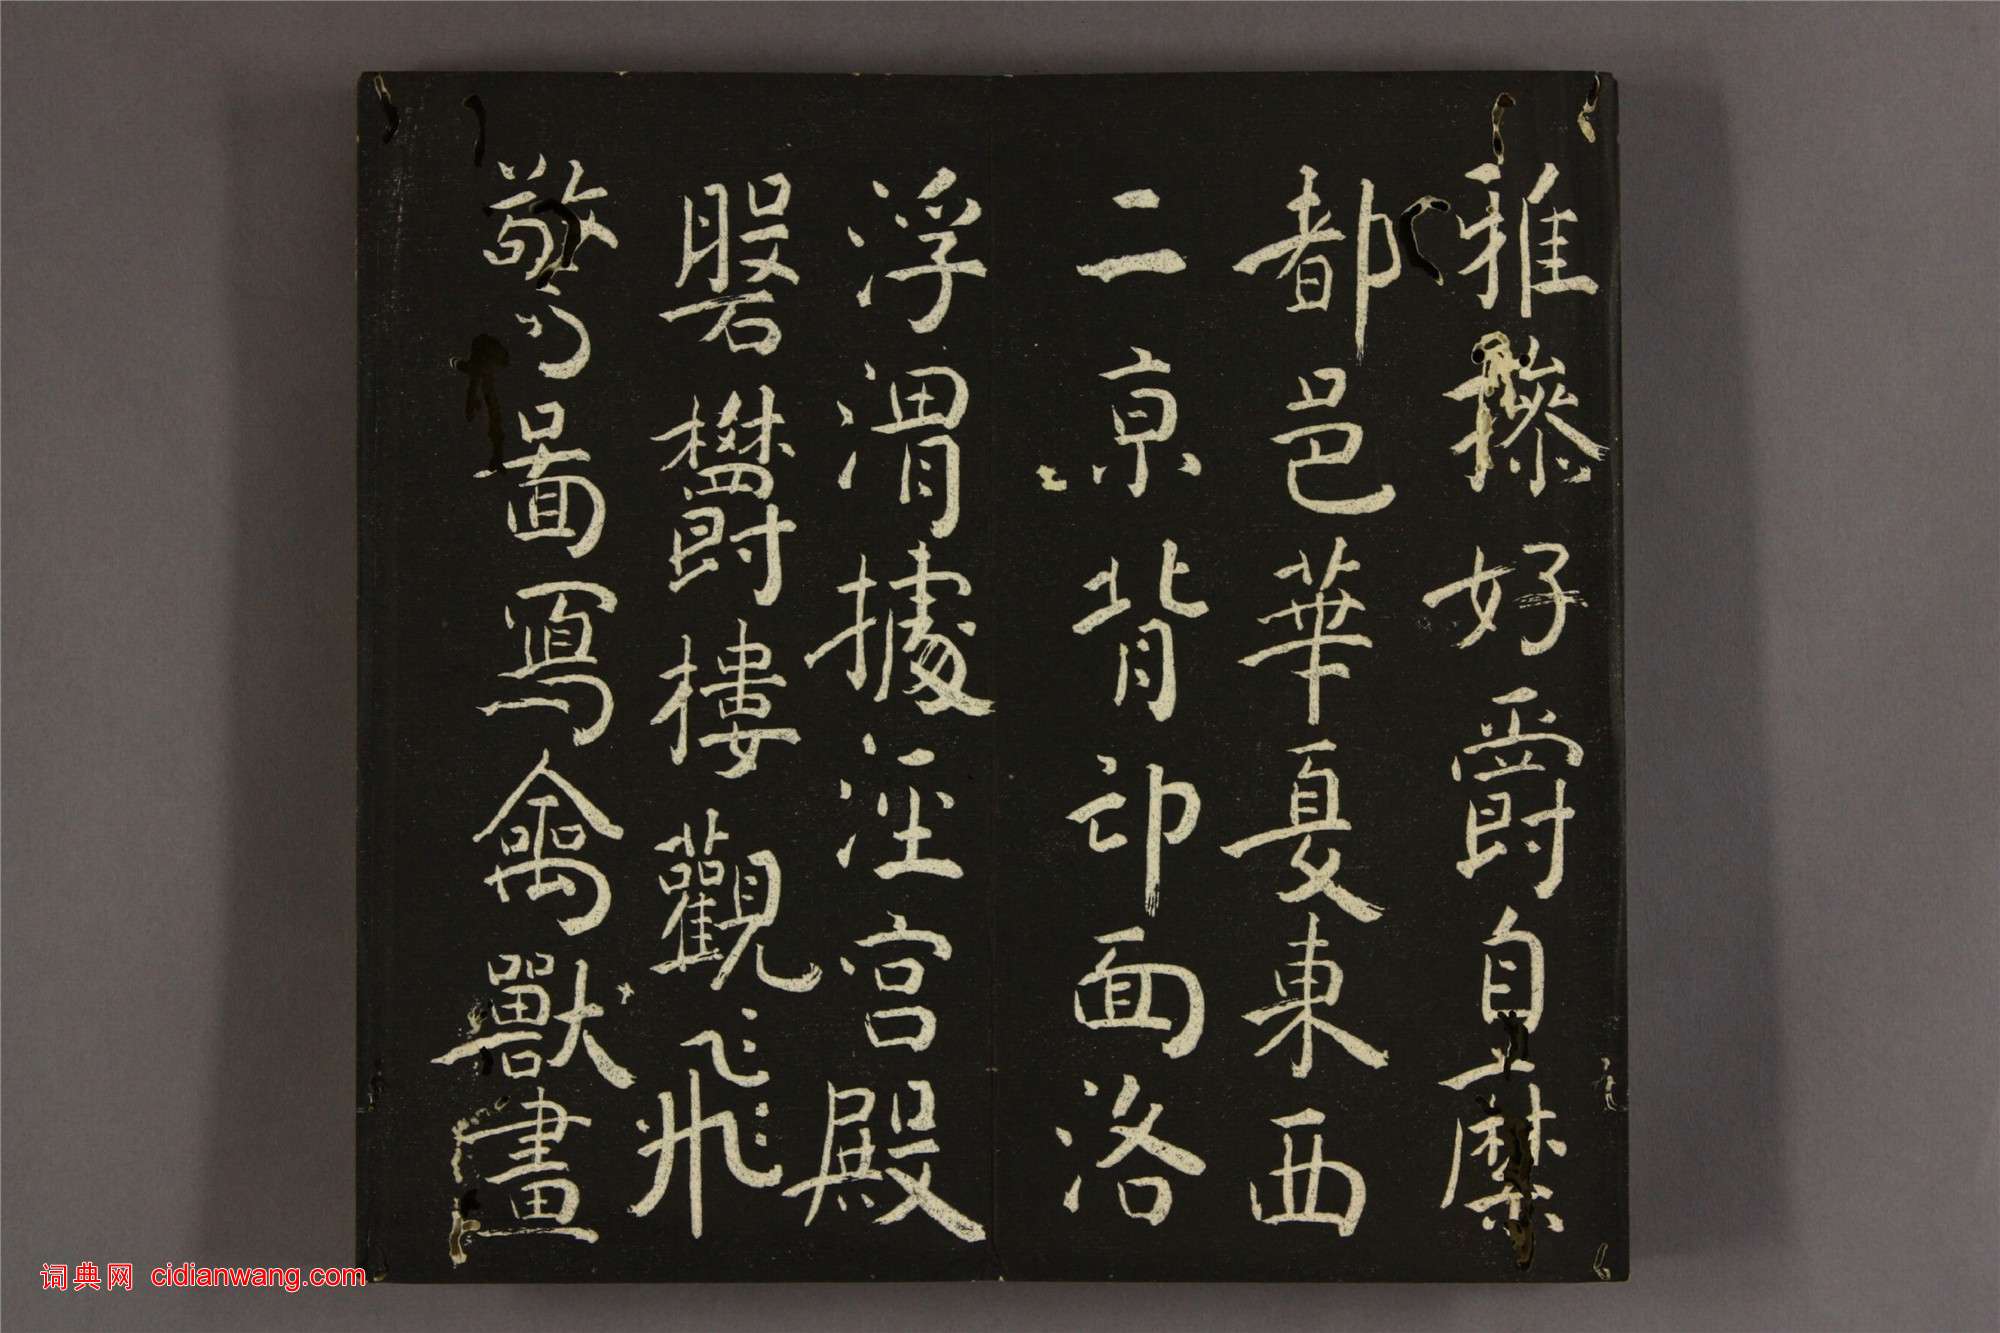 雅操好爵自縻
都邑華夏東西
二京背邙面洛
浮渭據涇宮殿
磐欝樓觀飛
驚圖寫禽獸畫
词典网 cidianwang.com